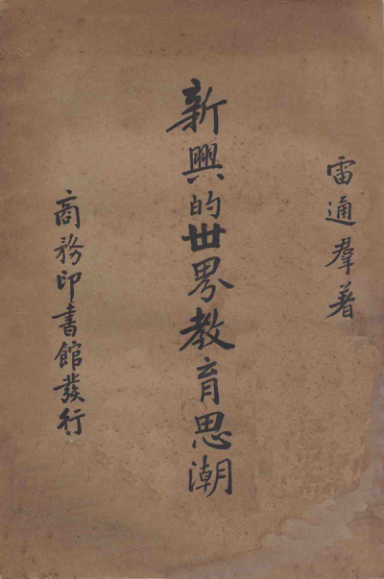 雷通羣著
新興的世界教育思潮
商務印書館發行